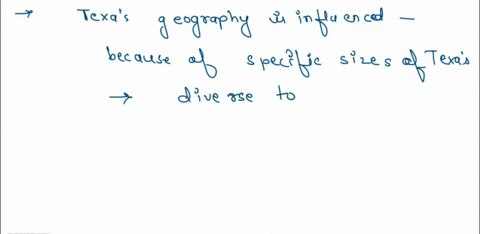 → Texa's geography is influenced —
because of specific sizes of Texa's
→ diverse to